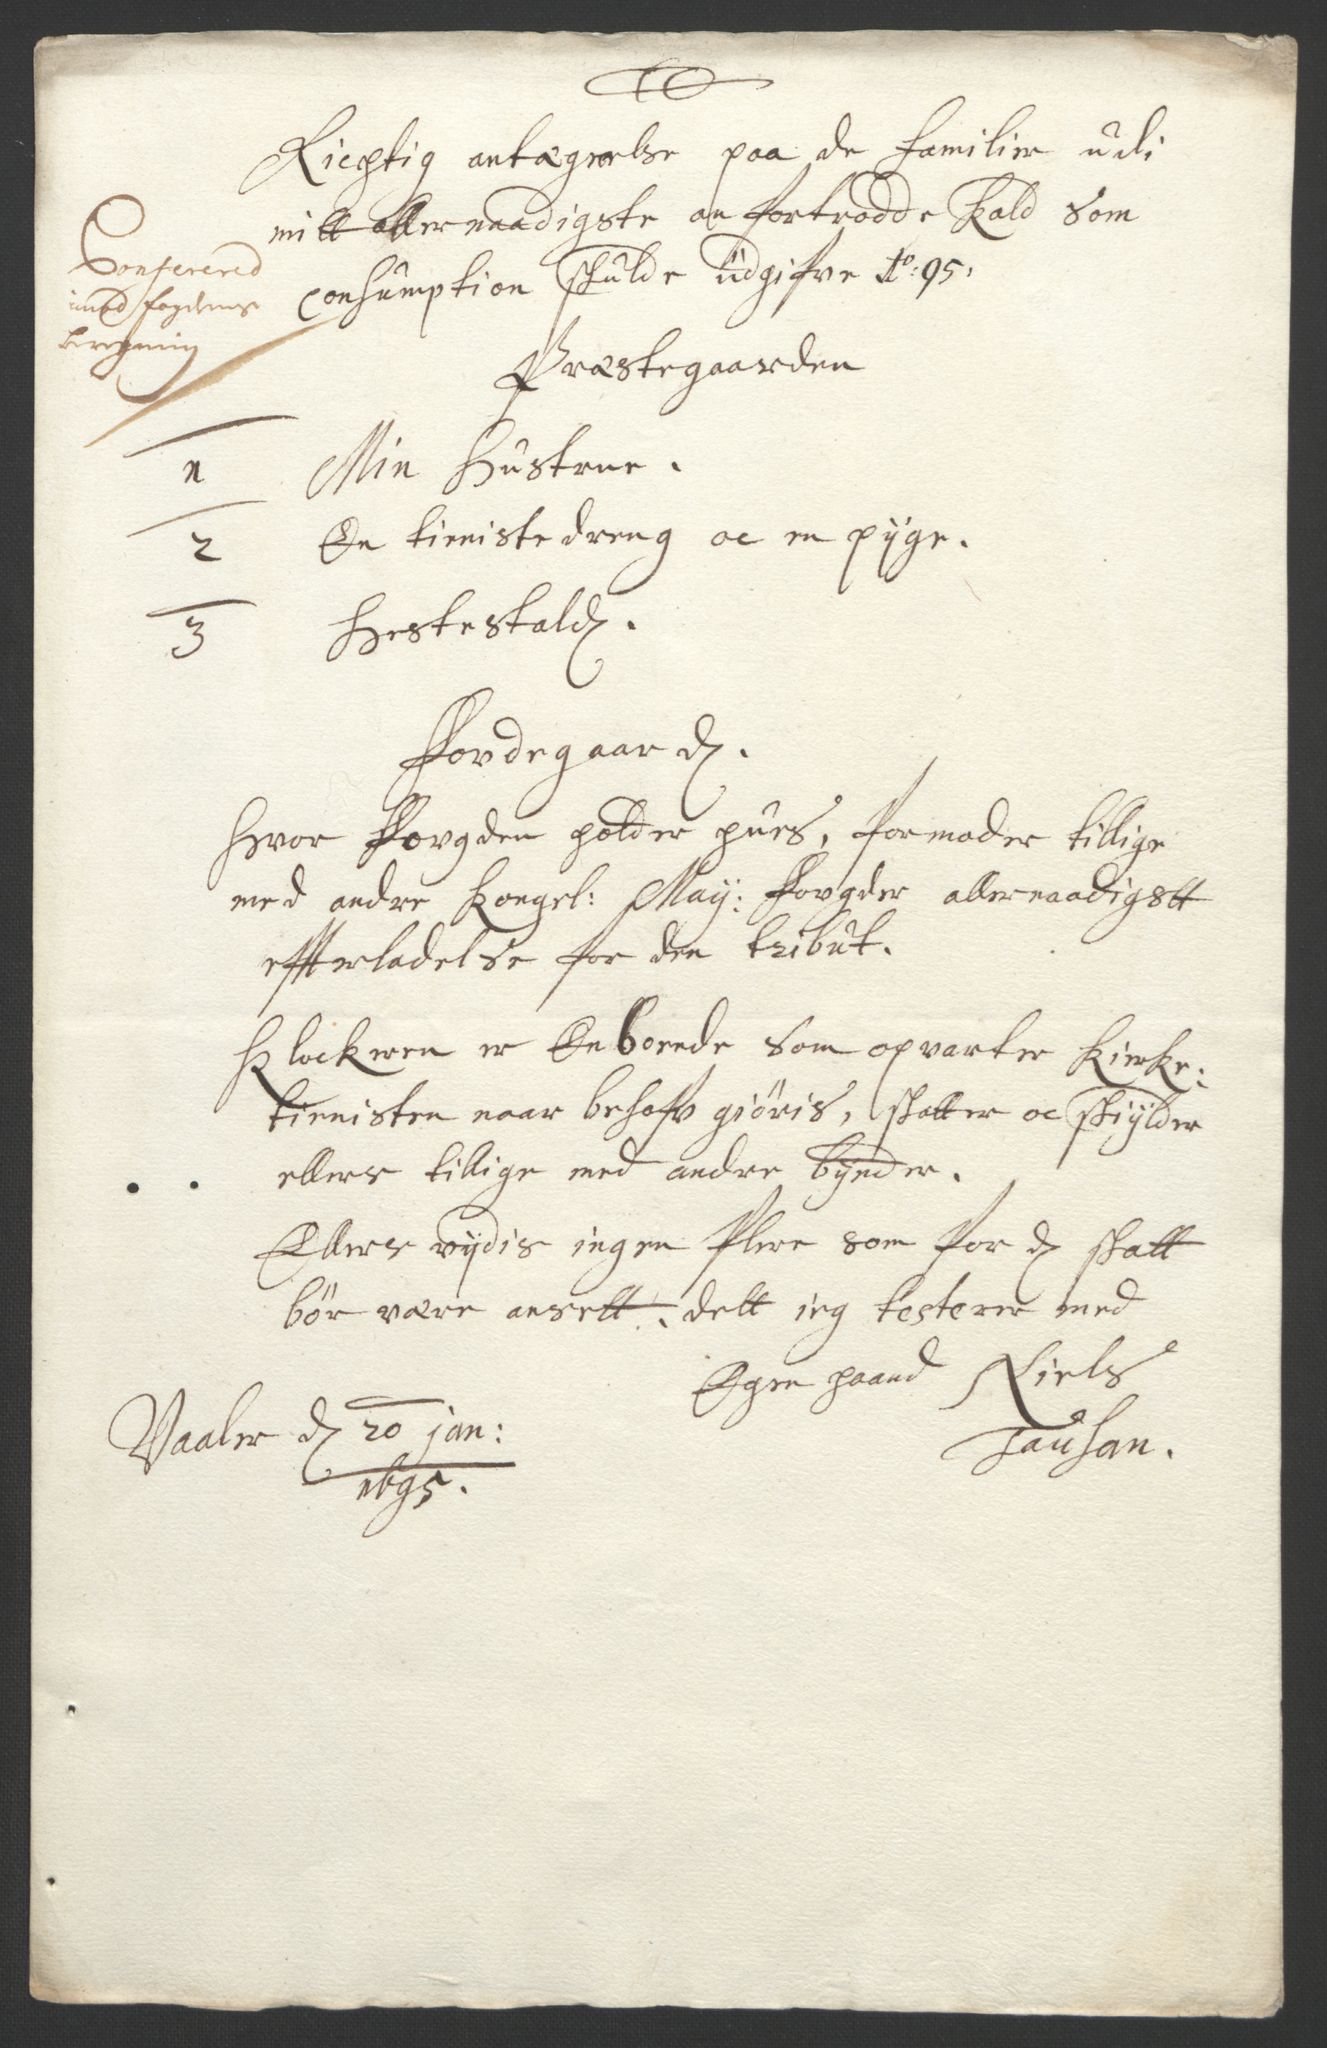 Riegtig antægnelse paa de familier udi
mitt allernaadigste anfortrodde Kald som
Conferered
imod fogdens
beregning
Consumption skulde üdgifve Aº: 95.
Præstegaarden
1 Min Hustrue.
2 En tieniste dreng oc en pige.
3 Hestestald.
Fovdegaard.
Hvor Fovgden holder huus, formoder tillige
med andre Kongel: May: Fovgder allernaadigstt
efterladelse for den tribut.
Klockeren er En boende som opvarter Kierke:
tienisten naar behof giöris, skatter oc skylder
ellers tillige med andre bynder.
Ellers vydis ingen flere som for d skatt
bör være ansett. dett ieg testerer med
Egen haand Niels
Tausan.
Vaaler d 20 jan:
1695.